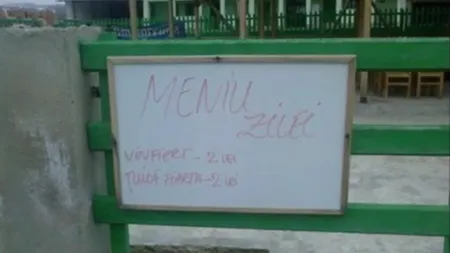 MENIU
ZILEI
VIN FIERT - 2 LEI
ȚUICĂ FIARTĂ - 2 LEI